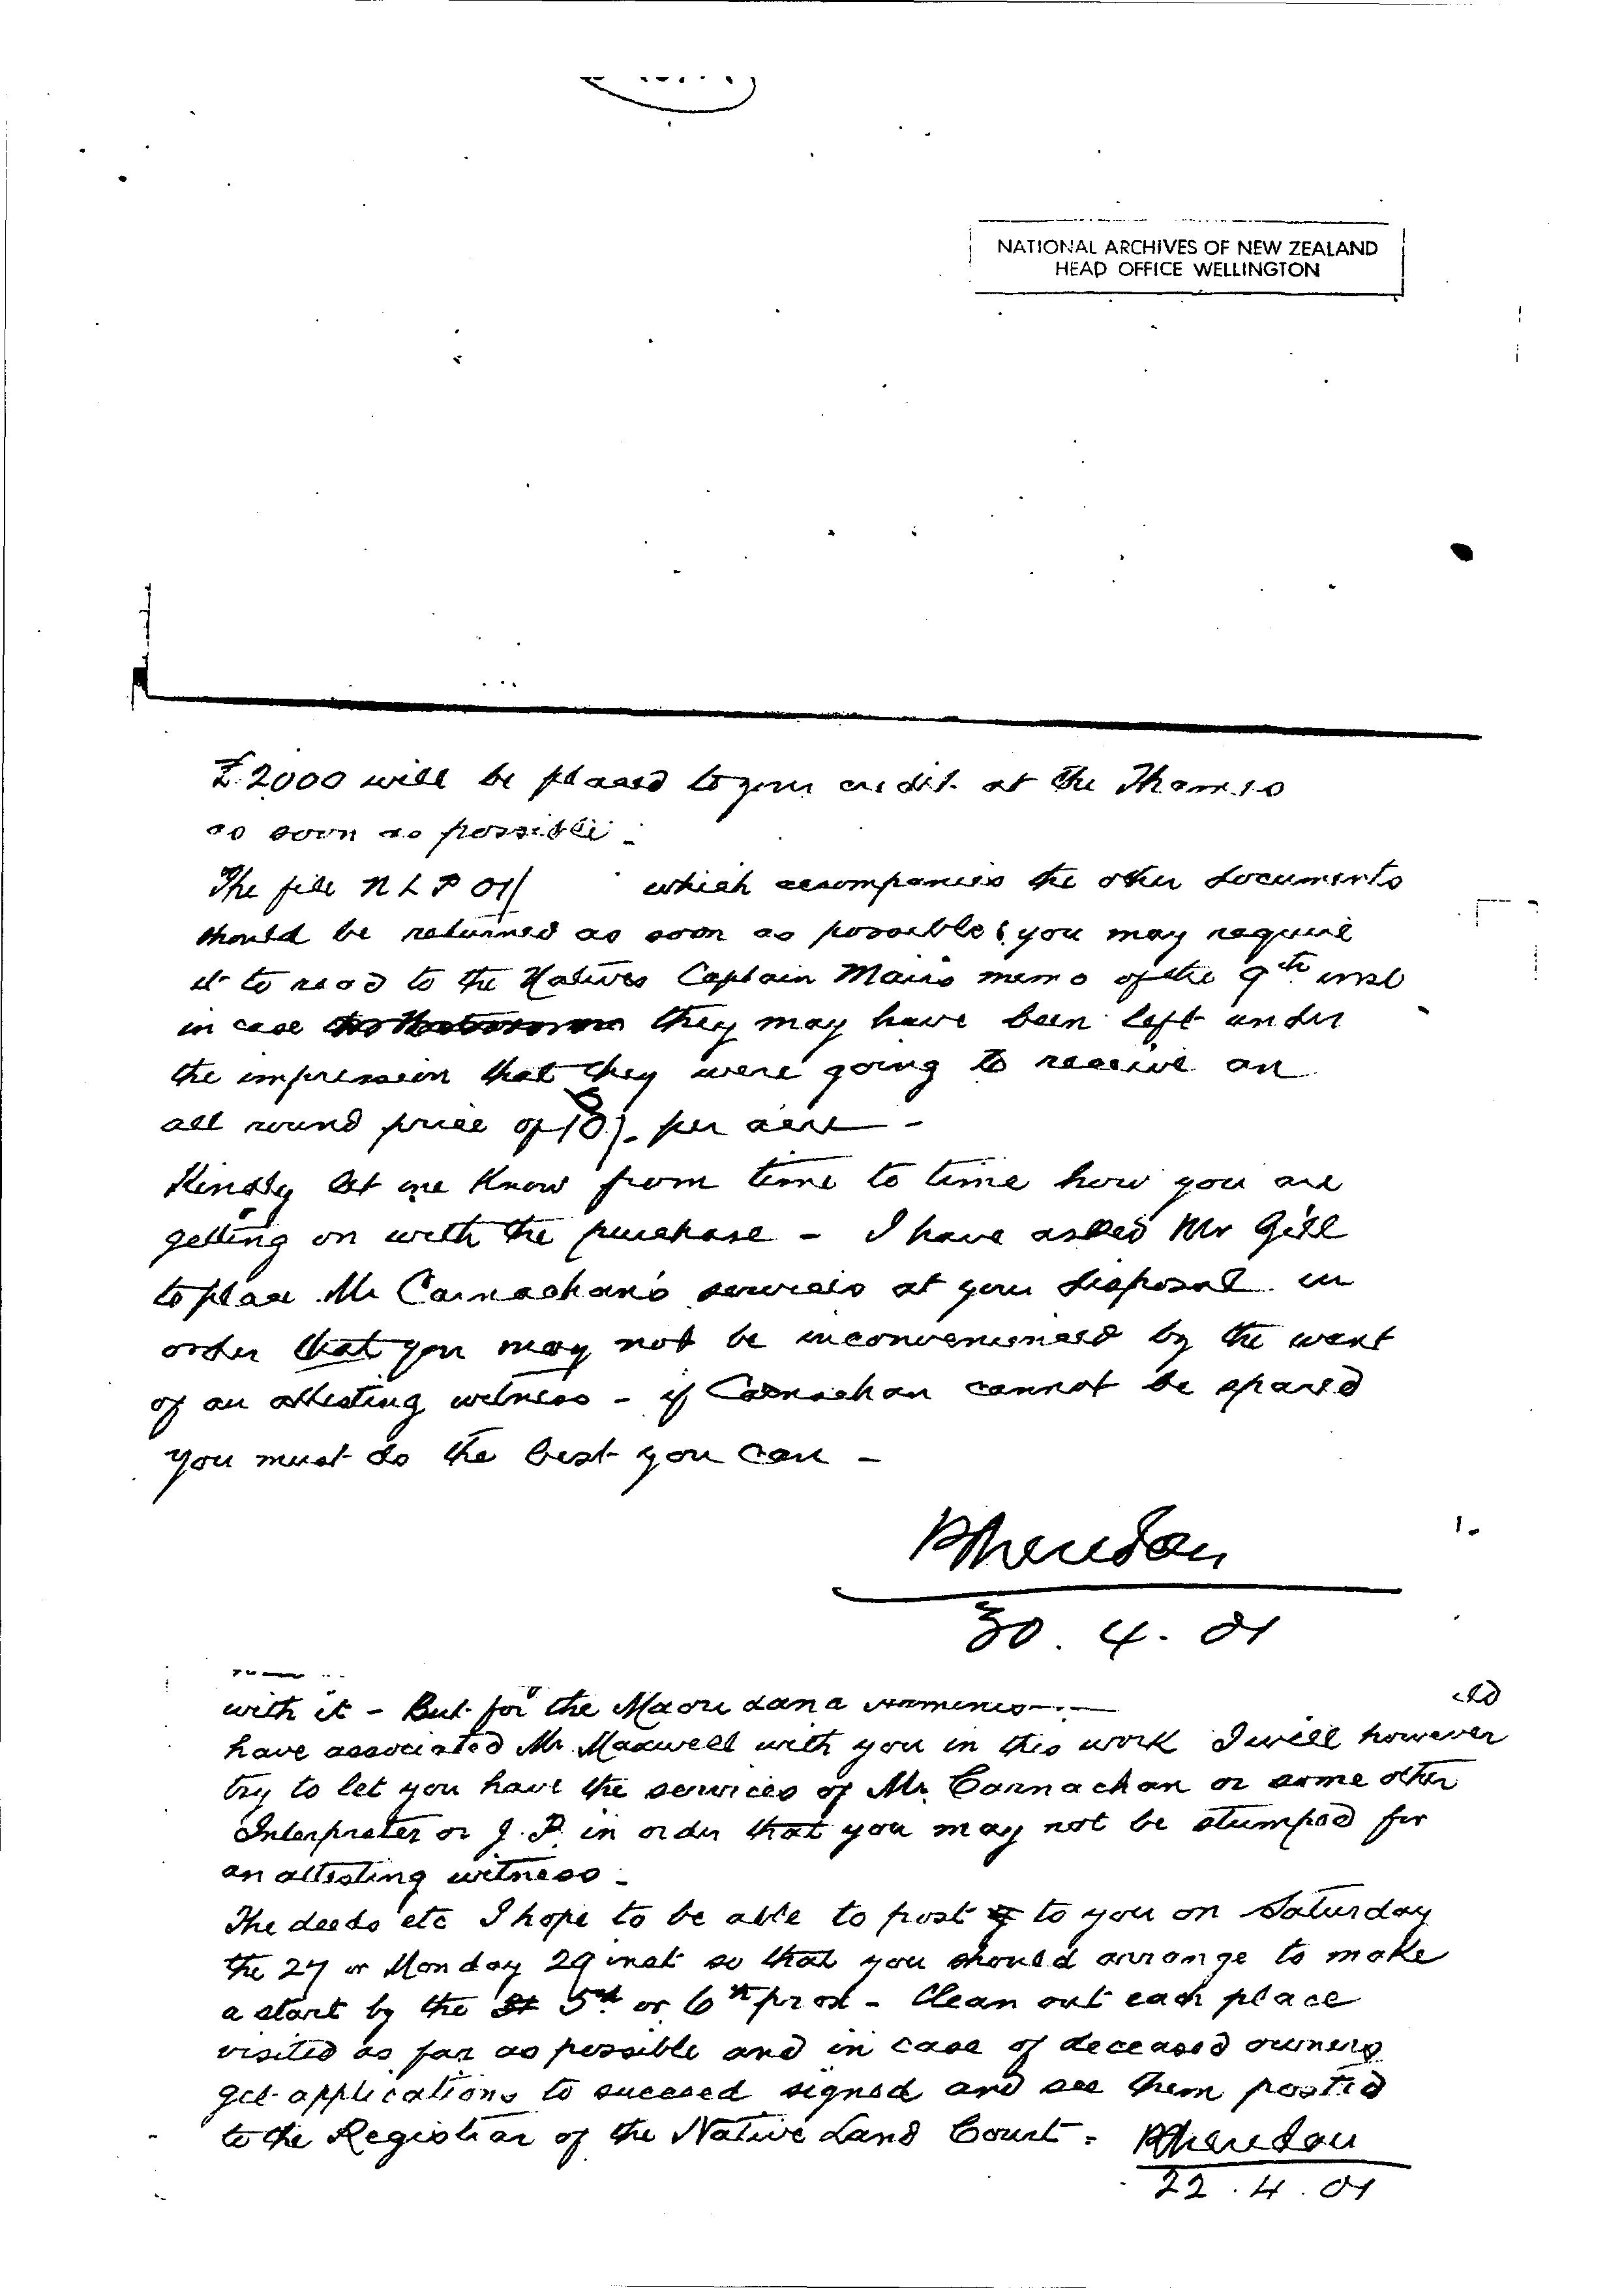 NATIONAL ARCHIVES OF NEW ZEALAND
HEAD OFFICE WELLINGTON
£2000 will be placed to your credit at the Thames
as soon as possible -
The file NLP 01/ which accompanies the other documents
should be returned as soon as possible & you may require
it to read to the Natives Captain Mairs memo of the 9th inst
in case they may have been left under
the impression that they were going to receive an
all round price of per acre -
Kindly let me know from time to time how you are
getting on with the purchase - I have asked Mr Gill
to place Mr Carnachan's services at your disposal in
order that you may not be inconvenienced by the want
of an attesting witness - if Carnachan cannot be spared
you must do the best you can -
PSheridan
30.4.01
with it - But for the Maori Land
have associated Mr. Maxwell with you in this work I will however
try to let you have the services of Mr. Carnachan or some other
Interpreter or J.P. in order that you may not be stumped for
an attesting witness -
The deeds etc I hope to be able to post to you on Saturday
the 27 or Monday 29 inst so that you should arrange to make
a start by the 5th or 6th prox - Clean out each place
visited as far as possible and in case of deceased owners
get applications to succeed signed and see them posted
to the Registrar of the Native Land Court - PSheridan
22.4.01